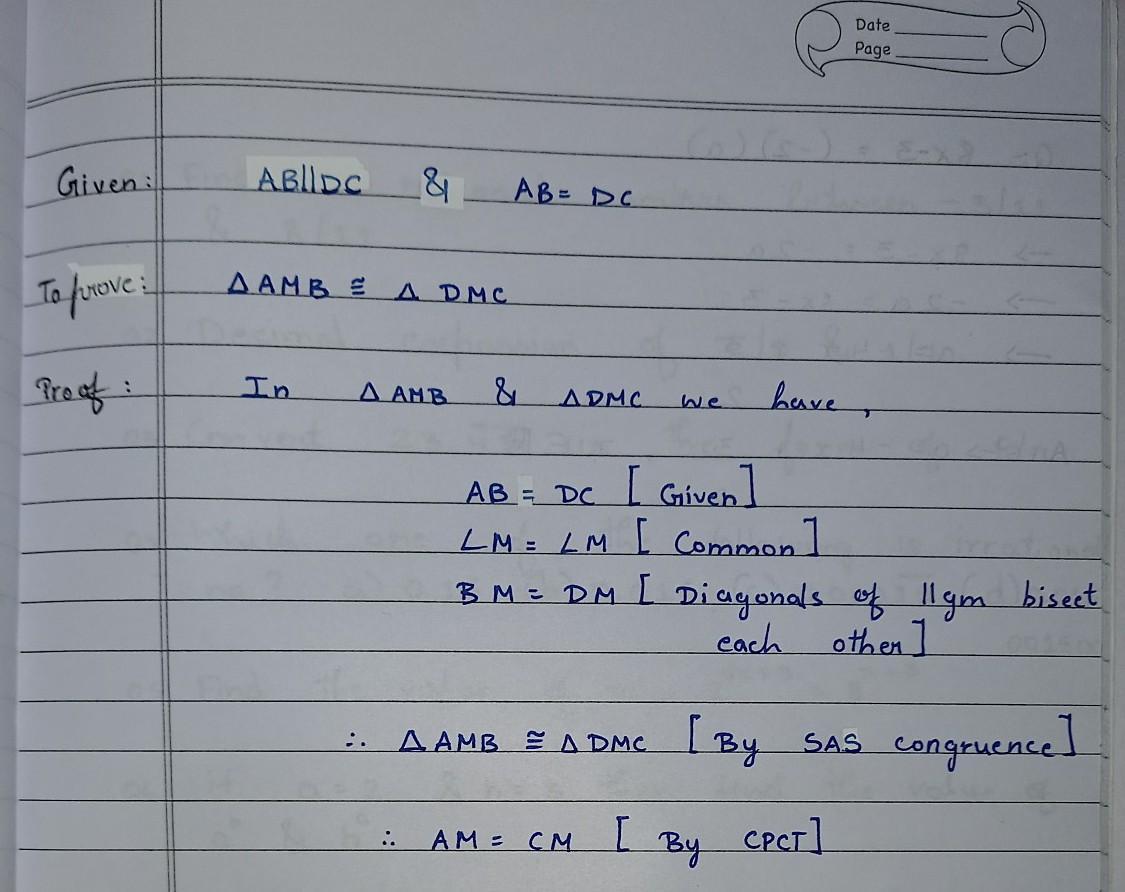 Date
Page
Given: AB||DC & AB= DC
To prove: Δ AMB ≅ Δ DMC
Proof: In Δ AMB & Δ DMC we have,
AB = DC [ Given ]
∠M = ∠M [ Common ]
BM = DM [ Diagonals of ||gm bisect
each other ]
∴ Δ AMB ≅ Δ DMC [ By SAS congruence ]
∴ AM = CM [ By CPCT ]